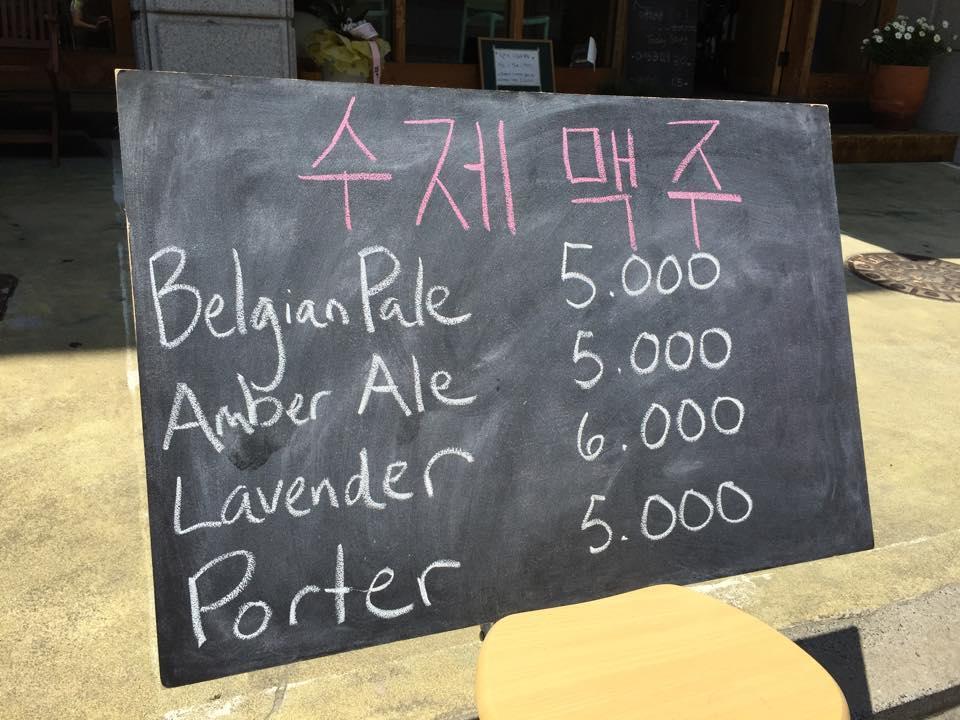 수제 맥주
Belgian Pale 5.000
Amber Ale 5.000
Lavender 6.000
Porter 5.000